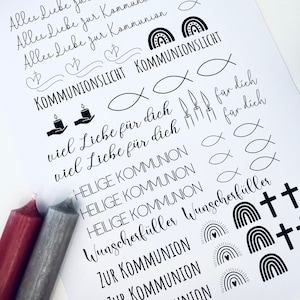 Alles Liebe zur Kommunion
Alles Liebe zur Kommunion
Alles Liebe zur Kommunion
KOMMUNIONSLICHT KOMMUNIONSLICHT
viel Liebe für dich für dich
viel Liebe für dich für dich
HEILIGE KOMMUNION
HEILIGE KOMMUNION
HEILIGE KOMMUNION
Wunscherfüller Wunscherfüller
ZUR KOMMUNION
ZUR KOMMUNION
ZUR KOMMUNION